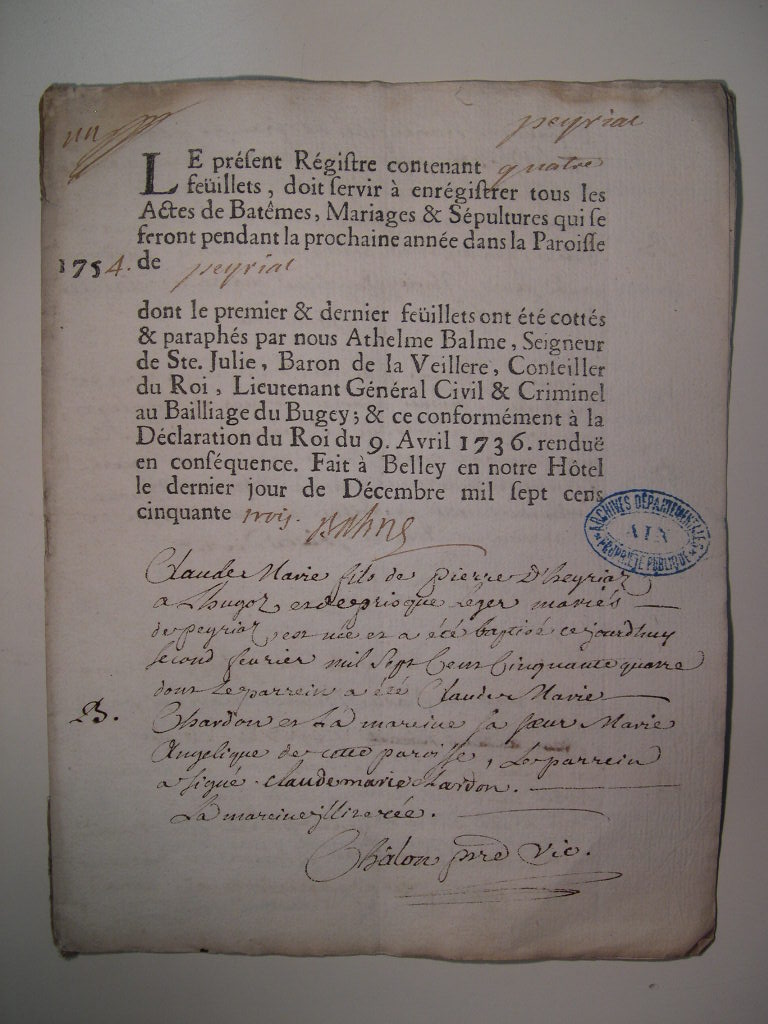 peyriat
LE présent Régistre contenant quatre
feüillets, doit servir à enrégistrer tous les
Actes de Batêmes, Mariages & Sépultures qui se
feront pendant la prochaine année dans la Paroisse
1754. de peyriat
dont le premier & dernier feüillets ont été cottés
& paraphés par nous Athelme Balme, Seigneur
de Ste. Julie, Baron de la Veillere, Conseiller
du Roi, Lieutenant Général Civil & Criminel
au Bailliage du Bugey; & ce conformément à la
Déclaration du Roi du 9. Avril 1736. renduë
en conséquence. Fait à Belley en notre Hôtel
le dernier jour de Décembre mil sept cens
cinquante trois. Balme
ARCHIVES DÉPARTEMENTALES
AIN
PROPRIÉTÉ PUBLIQUE
Claude Marie fils de pierre D'heyriat
a et de leger mariés
de peyriat, est née et a été baptisé ce jourdhuy
second fevrier mil sept Cent Cinquante quatre
dont Le parrein a été Claude Marie
B. Chardon et La mareine sa sœur Marie
Angelique de cette paroisse, Le parrein
a signé. claude marie chardon.
La mareine illiterée.
Châlon prre Vic.